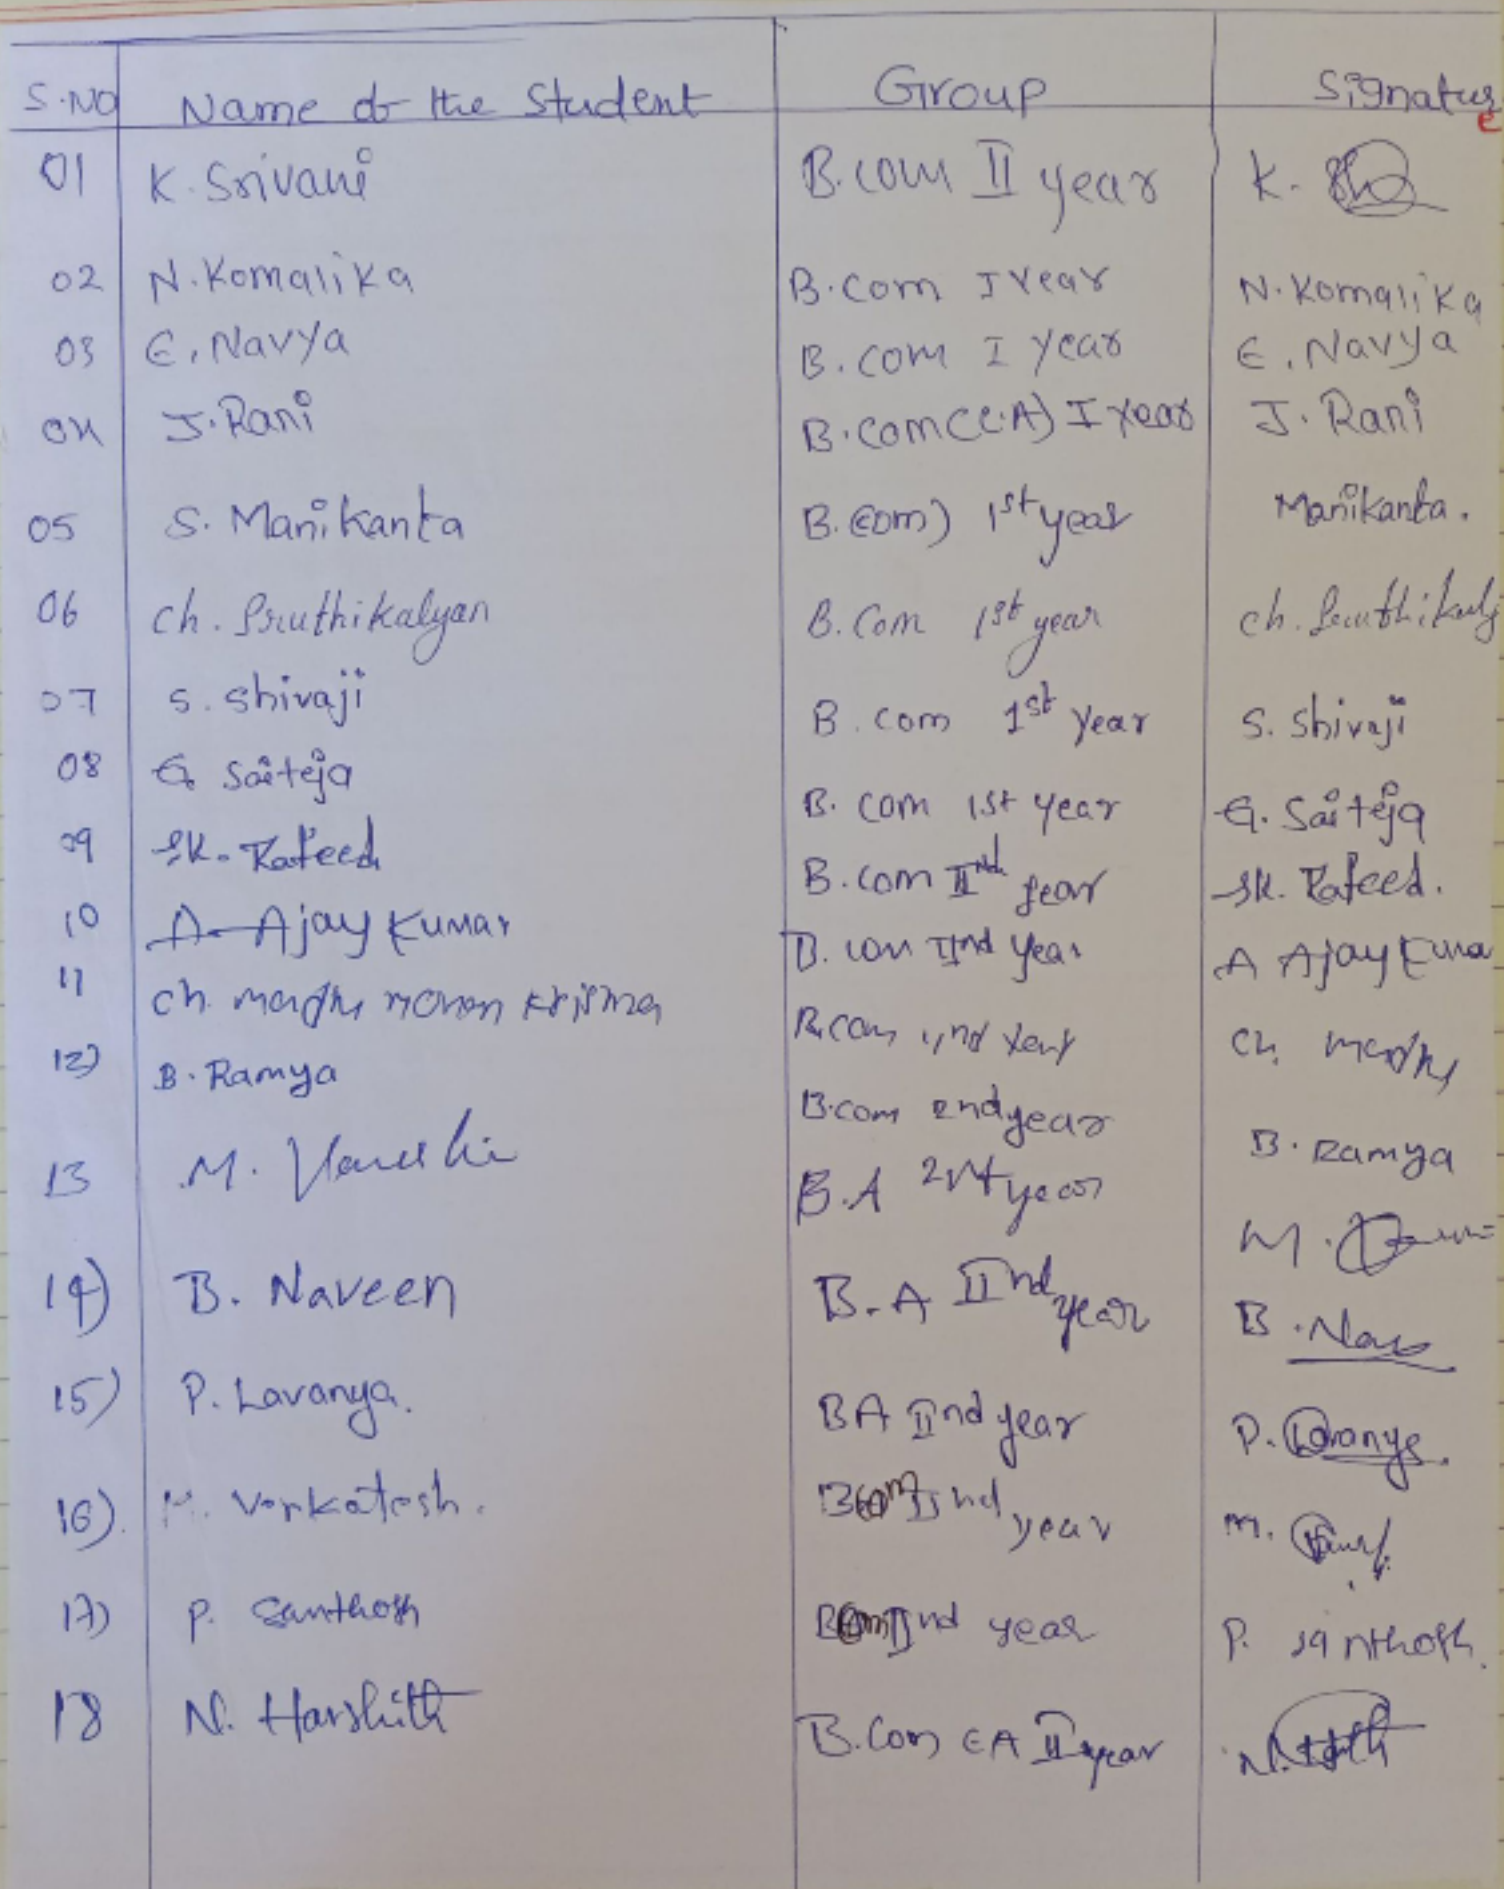 S.NO Name of the Student Group Signature
01 K. Srivani B.com II year K.
02 N. Komalika B.com I year N. Komalika
03 E. Navya B.com I year E. Navya
04 J. Rani B.com(C.A) I year J. Rani
05 S. Manikanta B.com) 1st year Manikanta.
06 Ch. Sruthikalyan B.Com 1st year Ch. Sruthikaly
07 S. Shivaji B.com 1st year S. Shivaji
08 G. Saiteja B.com 1st year G. Saiteja
09 SK. Rafeed B.com IInd year SK. Rafeed.
10 A. Ajay Kumar B.com IInd year A Ajay Kuma
11 Ch. madhu mohan krishna B.com IInd year Ch. madhu
12) B. Ramya B.com 2nd year B. Ramya
13 M. B.A year M.
14) B. Naveen B.A IInd year B. Nav
15) P. Lavanya. BA IInd year P. Lavanya.
16). M. Venkatesh. Bcom IInd year M.
17) P. Santhosh Bcom IInd year P. Santhosh.
18 N. Harshith B.Com CA II year N.